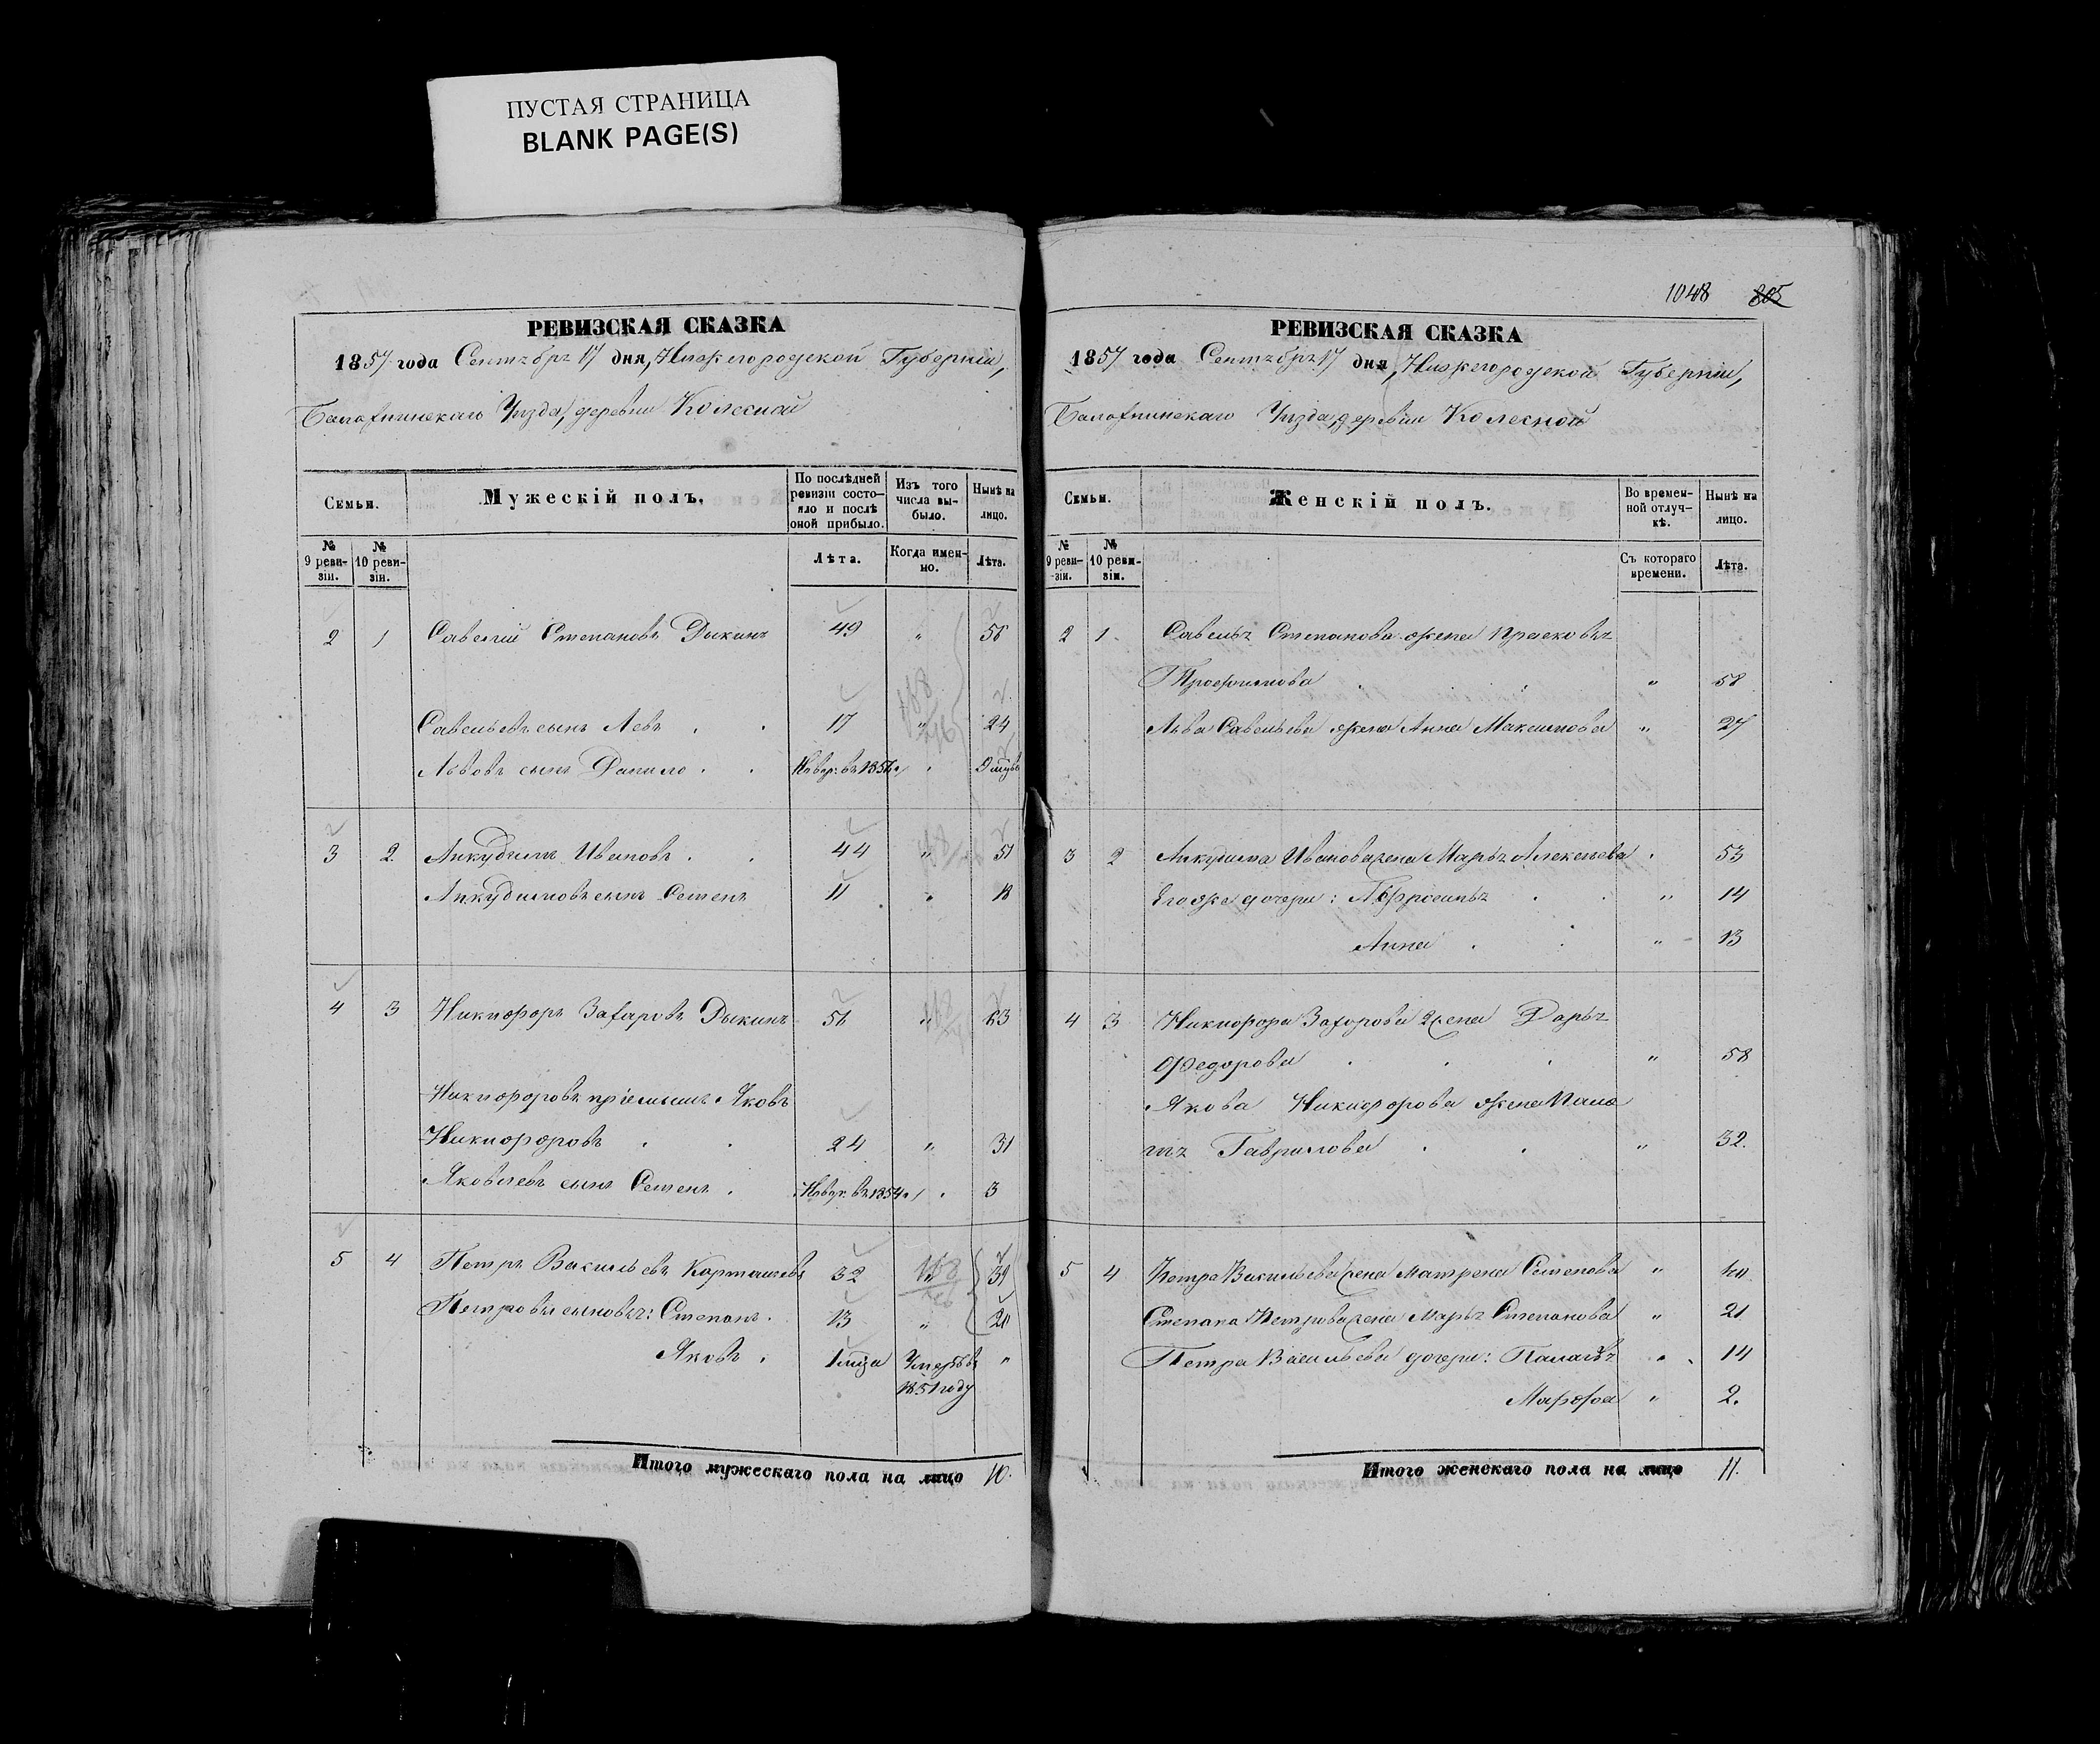 ПУСТАЯ СТРАНИЦА
BLANK PAGE(S)
РЕВИЗСКАЯ СКАЗКА
1857 года Сентября 17 дня, Нижегородской Губерніи,
Балахнинскаго Уѣзда, деревни Колесной
Семьи.
Мужескій полъ.
По послѣдней ревизіи состояло и послѣ оной прибыло.
Изъ того числа выбыло.
Нынѣ на лицо.
№ 9 ревизіи.
№ 10 ревизіи.
Лѣта.
Когда именно.
Лѣта.
2 1 Савелій Степановъ Дыкинъ 49 " 56
Савельевъ сынъ Левъ . . 17 " 24
Львовъ сынъ Данило . . Новор. въ 185
3 2. Анкудинъ Ивановъ . . 44 " 51
Анкудиновъ сынъ Семенъ 11 " 18
4 3 Никифоръ Захаровъ Дыкинъ 56 " 63
Никифоровъ пріемышъ Яковъ
Никифоровъ . . 24 " 31
Яковлевъ сынъ Семенъ . Новор. въ 1854 3
5 4 Петръ Васильевъ Карташевъ 32 " 39
Петровы сыновья: Степанъ . 13 " 20
Яковъ . 1 мѣся Умеръ въ "
1851 году
Итого мужескаго пола на лицо 10.
1048 805
РЕВИЗСКАЯ СКАЗКА
1857 года Сентября 17 дня, Нижегородской Губерніи,
Балахнинскаго Уѣзда, деревни Колесной
Семьи.
Женскій полъ.
Во временной отлучкѣ.
Нынѣ на лицо.
№ 9 ревизіи.
№ 10 ревизіи.
Съ котораго времени.
Лѣта.
2 1. Савелья Степанова жена Прасковья
Трофимова " 58
Льва Савельева жена Анна Максимова " 27
3 2 Анкудина Иванова жена Марья Алексѣева . 53
Его же дочери: Афросинья . . " 14
Анна . . " 13
4 3 Никифора Захорова жена Дарья
Федорова . . . " 58
Якова Никифорова жена Пала
гія Гаврилова . . " 32.
5 4 Петра Васильева жена Матрена Семенова " 40
Степана Петрова жена Марья Степанова " 21
Петра Васильева дочери: Палагья " 14
Марфа " 2.
Итого женскаго пола на лицо 11.